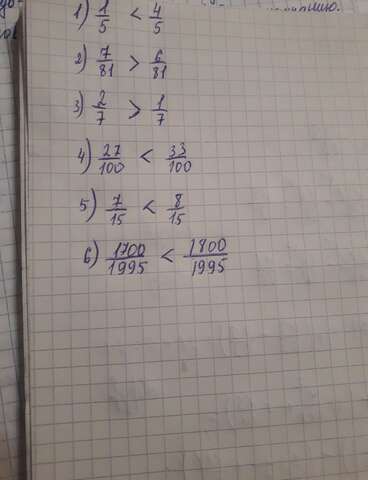 1) 1/5 < 4/5
2) 7/81 > 6/81
3) 2/7 > 1/7
4) 27/100 < 33/100
5) 7/15 < 8/15
6) 1700/1995 < 1800/1995